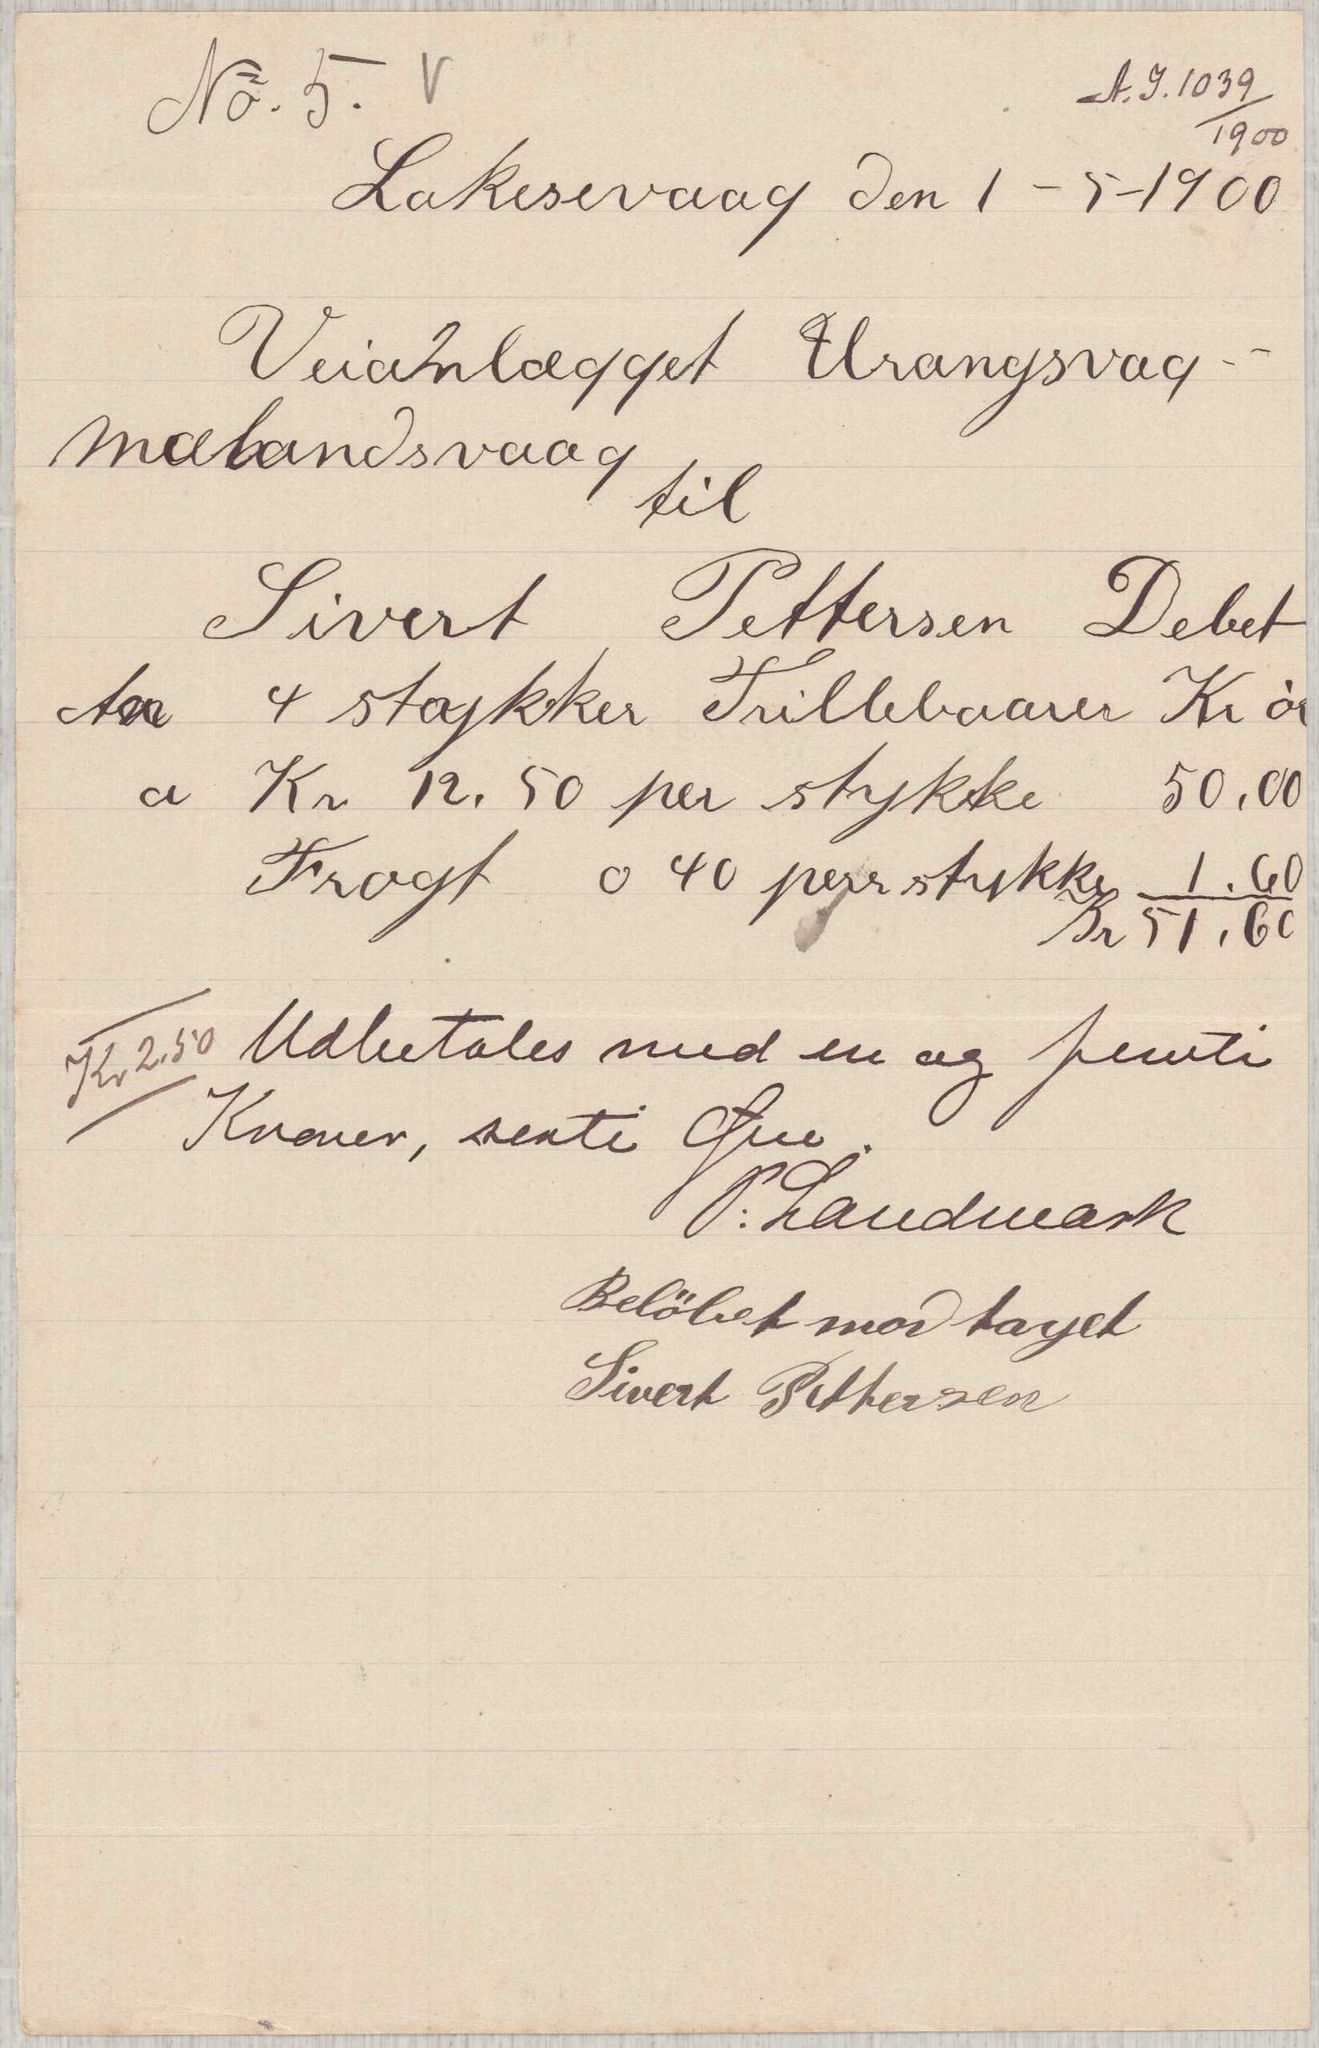 No. 5. V
A.J. 1039
1900
Laksevaag den 1 - 5 - 1900
Veianlægget Urangsvag -
mælandsvaag
til
Sivert Pettersen Debet
An 4 støykker Trillebaarer Kr ör
a Kr 12.50 per stykke 50,00
Fragt o 40 perr stykke 1.60
Kr 51,60
Kr 2.50 Udbetales med en og femti
Kroner, sexti Øre.
P. Landmark
Belöbet mod taget
Sivert Pettersen